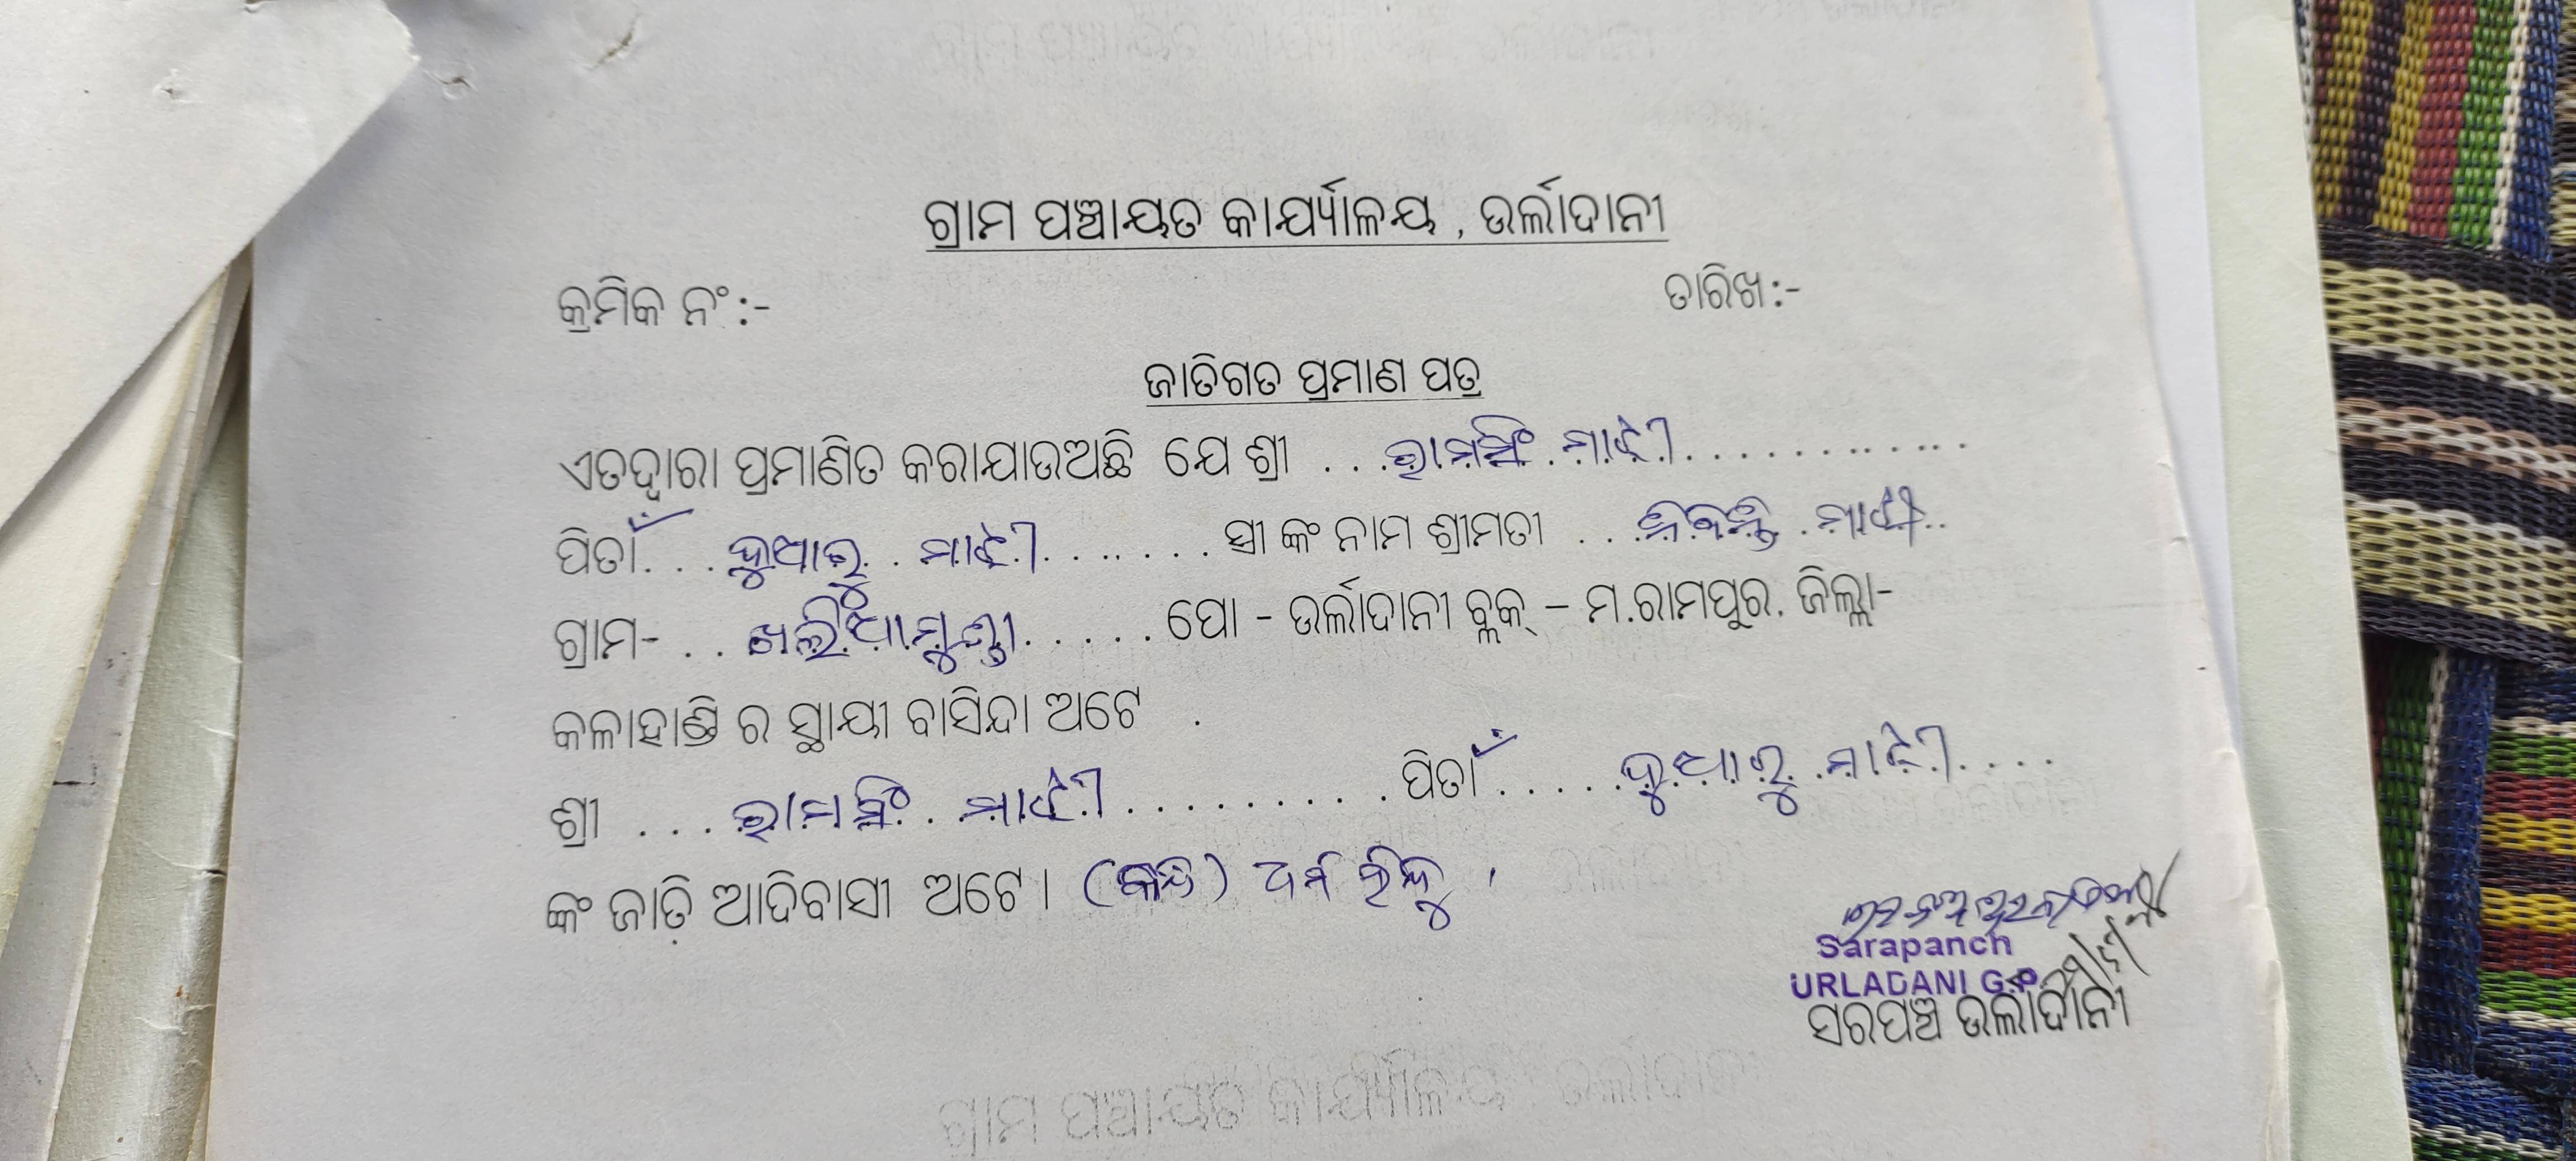 ଗ୍ରାମ ପଞ୍ଚାୟତ କାର୍ଯ୍ୟାଳୟ , ଉର୍ଲାଦାନୀ
କ୍ରମିକ ନଂ :- ତାରିଖ :-
ଜାତିଗତ ପ୍ରମାଣ ପତ୍ର
ଏତଦ୍ବାରା ପ୍ରମାଣିତ କରାଯାଉଅଛି ଯେ ଶ୍ରୀ ... ରାମସିଂ ମାଝୀ ............
ପିତାଁ ... ଦୁଆରୁ ମାଝୀ ....... ସ୍ତ୍ରୀ ଙ୍କ ନାମ ଶ୍ରୀମତୀ ... ମାଝୀ ..
ଗ୍ରାମ- .. ଖଲିଆମୁଣ୍ଡା ..... ପୋ - ଉର୍ଲାଦାନୀ ବ୍ଲକ୍ – ମ.ରାମପୁର, ଜିଲ୍ଲା-
କଳାହାଣ୍ଡି ର ସ୍ଥାୟୀ ବାସିନ୍ଦା ଅଟେ .
ଶ୍ରୀ ... ରାମସିଂ ମାଝୀ .......... ପିତାଁ ..... ଦୁଆରୁ ମାଝୀ ....
ଙ୍କ ଜାତି ଆଦିବାସୀ ଅଟେ । (କନ୍ଧ) ଧର୍ମ ହିନ୍ଦୁ ।
Sarapanch
URLADANI G.P.
ସରପଞ୍ଚ ଉର୍ଲାଦାନୀ